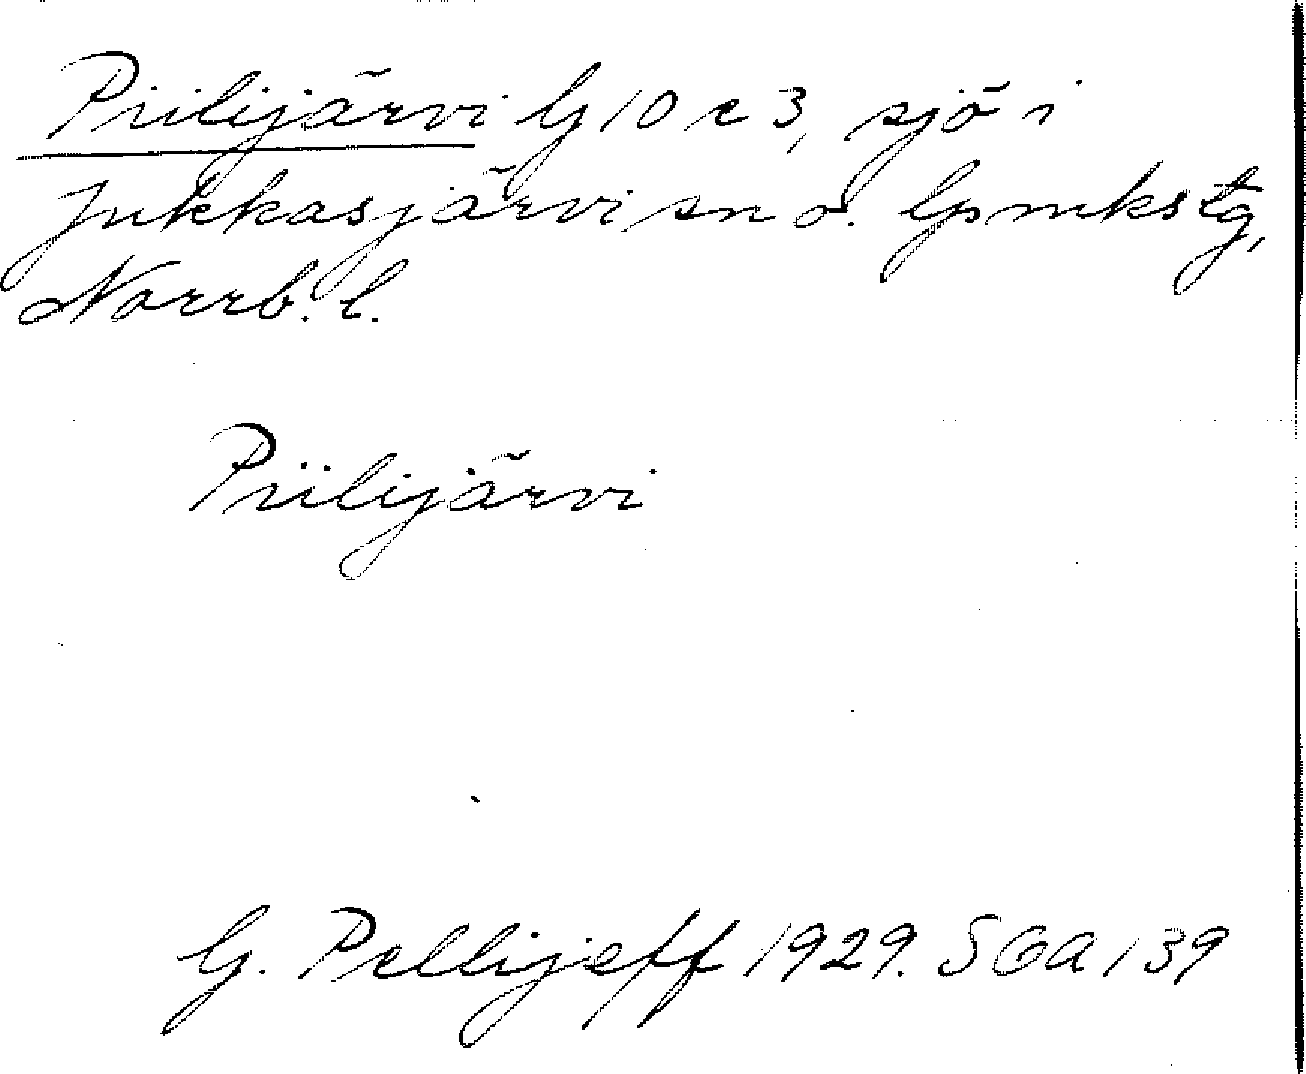 Piilijärvi G 10 c 3, sjö i
Jukkasjärvi sn o. lpmkstg,
Norrb. l.
Piilijärvi
G. Pellijeff 1929. SGA 139